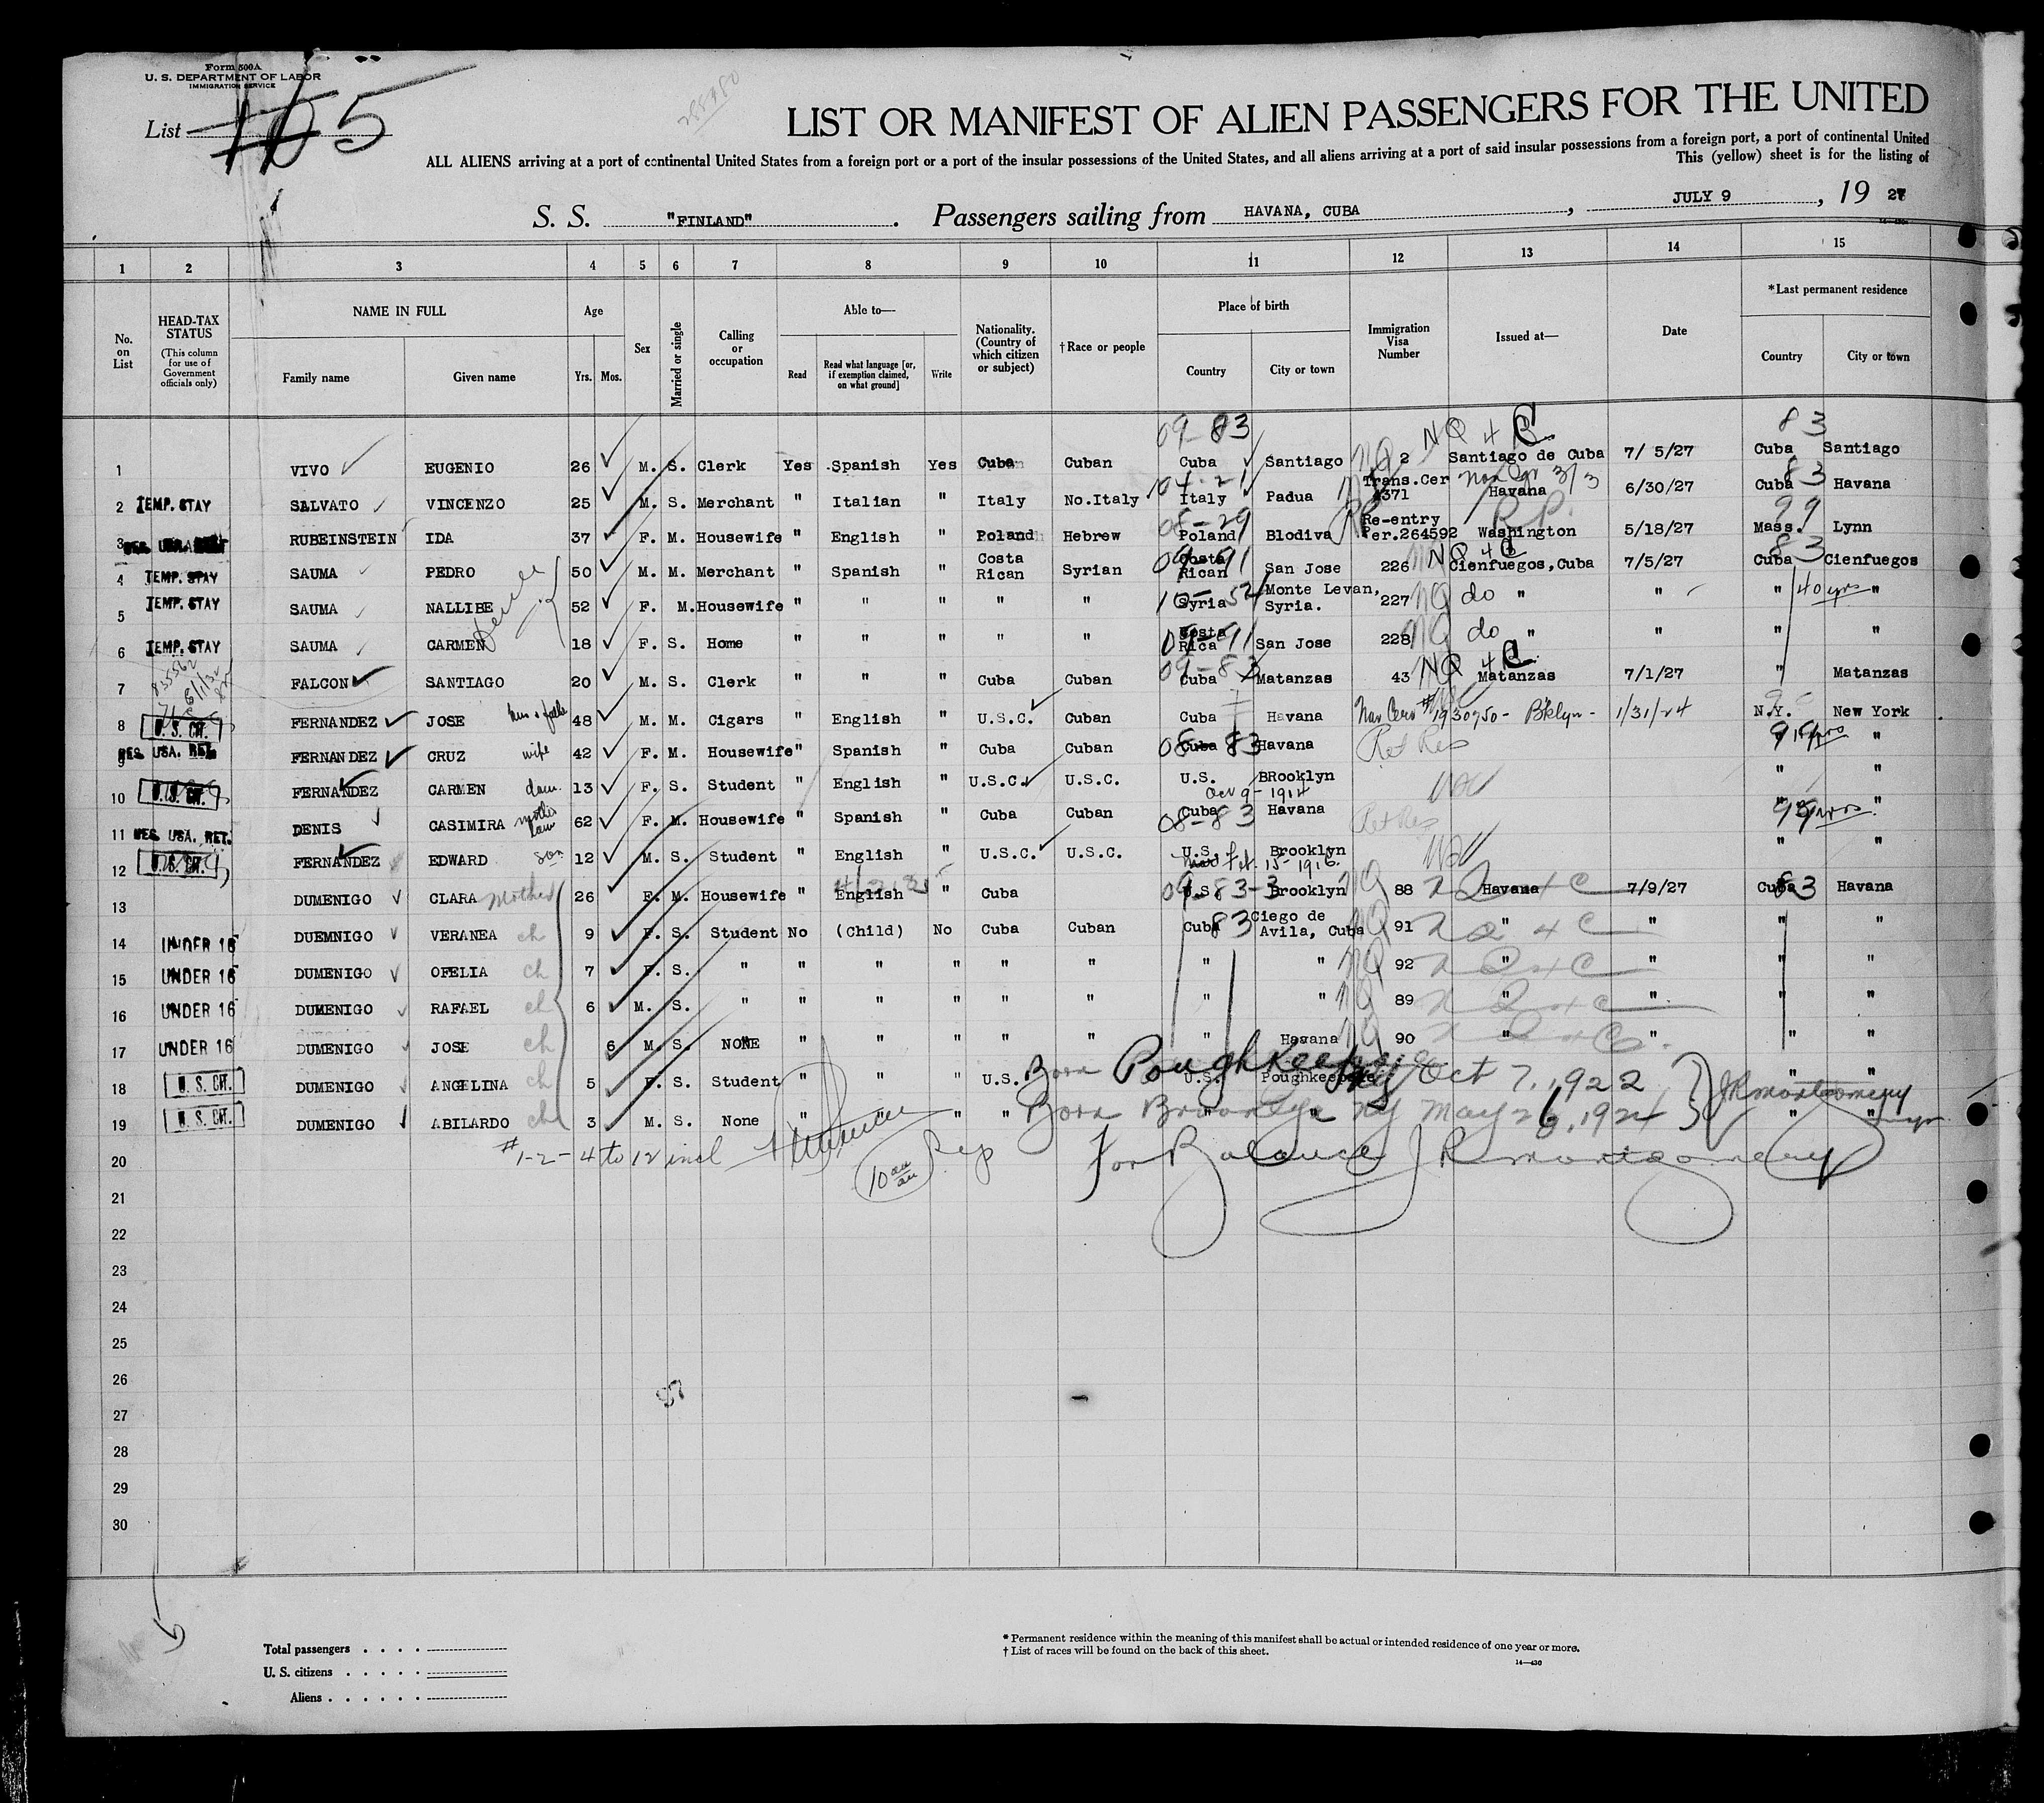 Form 500A
U. S. DEPARTMENT OF LABOR
IMMIGRATION SERVICE
List 5
288780
LIST OR MANIFEST OF ALIEN PASSENGERS FOR THE UNITED
ALL ALIENS arriving at a port of continental United States from a foreign port or a port of the insular possessions of the United States, and all aliens arriving at a port of said insular possessions from a foreign port, a port of continental United
This (yellow) sheet is for the listing of
S. S. "FINLAND". Passengers sailing from HAVANA, CUBA, JULY 9, 1927
1 2 3 4 5 6 7 8 9 10 11 12 13 14 15
No. on List
HEAD-TAX STATUS (This column for use of Government officials only)
NAME IN FULL Family name Given name
Age Yrs. Mos.
Sex
Married or single
Calling or occupation
Able to— Read Read what language [or, if exemption claimed, on what ground] Write
Nationality. (Country of which citizen or subject)
†Race or people
Place of birth Country City or town
Immigration Visa Number
Issued at—
Date
*Last permanent residence Country City or town
09-83 NQ 4 C 83
1 VIVO EUGENIO 26 M. S. Clerk Yes Spanish Yes Cuba Cuban Cuba Santiago NQ 2 Santiago de Cuba 7/ 5/27 Cuba Santiago
2 TEMP. STAY SALVATO VINCENZO 25 M. S. Merchant " Italian " Italy No.Italy Italy Padua Trans.Cer 4371 Havana 3/3 6/30/27 Cuba 83 Havana
3 RUBEINSTEIN IDA 37 F. M. Housewife " English " Poland Hebrew 08-29 Poland Blodiva Re-entry Per.264592 R.P. Washington 5/18/27 99 Mass. Lynn
4 TEMP. STAY SAUMA PEDRO 50 M. M. Merchant " Spanish " Costa Rican Syrian 09-91 Costa Rican San Jose 226 NQ 4 C Cienfuegos, Cuba 7/5/27 83 Cuba Cienfuegos
5 TEMP. STAY SAUMA NALLIBE 52 F. M. Housewife " " " " " 10-52 Syria Monte Levan, Syria. 227 NQ do " " " 40 yrs "
6 TEMP. STAY SAUMA CARMEN 18 F. S. Home " " " " " 09-91 Costa Rica San Jose 228 NQ do " " " "
7 FALCON SANTIAGO 20 M. S. Clerk " " " Cuba Cuban 09-83 Cuba Matanzas 43 NQ 4 C Matanzas 7/1/27 " Matanzas
8 U. S. CIT. FERNANDEZ JOSE 48 M. M. Cigars " English " U.S.C. Cuban Cuba Havana #1930750 - Bklyn - 1/31/24 N.Y. New York
9 RES. USA. RET. FERNANDEZ CRUZ wife 42 F. M. Housewife " Spanish " Cuba Cuban 08-83 Cuba Havana Ret Res 99 yrs "
10 U. S. CIT. FERNANDEZ CARMEN dau. 13 F. S. Student " English " U.S.C. U.S.C. U.S. BRooklyn " "
9 - 1914
11 RES. USA. RET. DENIS CASIMIRA mother law 62 F. M. Housewife " Spanish " Cuba Cuban 08-83 Cuba Havana Ret Res " 99 yrs "
12 U. S. CIT. FERNANDEZ EDWARD son 12 M. S. Student " English " U.S.C. U.S.C. U.S. Brooklyn " "
Feb. 15 - 1916.
13 DUMENIGO CLARA Mother 26 F. M. Housewife " English " Cuba 09-83-3 U.S. Brooklyn NQ 88 Havana 7/9/27 Cuba 83 Havana
14 UNDER 16 DUEMNIGO VERANEA ch 9 F. S. Student No (Child) No Cuba Cuban Cuba 83 Ciego de Avila, Cuba NQ 91 " " " "
15 UNDER 16 DUMENIGO OFELIA ch 7 F. S. " " " " " " " " NQ 92 " " " "
16 UNDER 16 DUMENIGO RAFAEL ch 6 M. S. " " " " " " " " NQ 89 " " " "
17 UNDER 16 DUMENIGO JOSE ch 6 M. S. NONE " " " " " " Havana NQ 90 " " " "
18 U. S. CIT. DUMENIGO ANGELINA ch 5 F. S. Student " " " U.S. U.S. Poughkeepsie " "
Born Poughkeepsie NY Oct 7, 1922 JR Montgomery
19 U. S. CIT. DUMENIGO ABILARDO ch 3 M. S. None " " " " " " " "
Born Brooklyn NY May 26, 1924
20 #1-2-4 to 12 incl 10 For Balance J R Montgomery
21
22
23
24
25
26
27
28
29
30
Total passengers
U. S. citizens
Aliens
* Permanent residence within the meaning of this manifest shall be actual or intended residence of one year or more.
† List of races will be found on the back of this sheet.
14—430